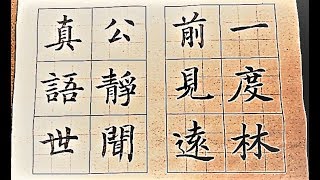 一度林
前見遠
公靜聞
真語世